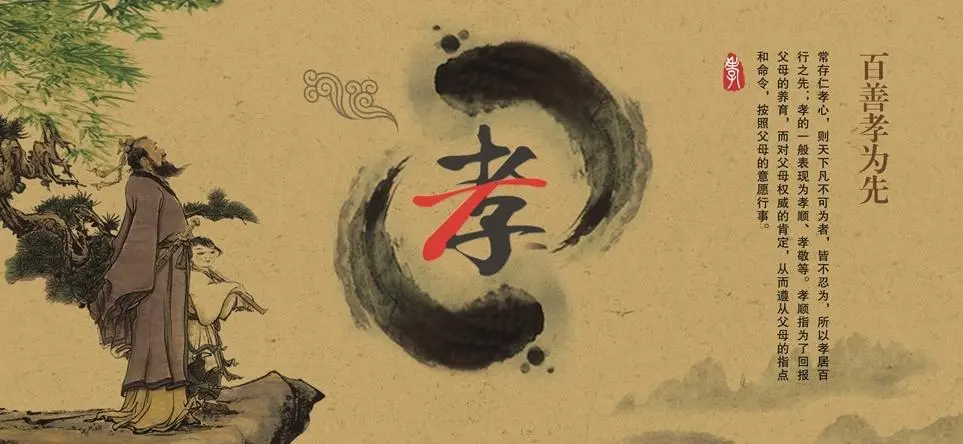 百善孝为先
常存仁孝心，则天下凡不可为者，皆不忍为，所以孝居百
行之先；孝的一般表现为孝顺、孝敬等。孝顺指为了回报
父母的养育，而对父母权威的肯定，从而遵从父母的指点
和命令，按照父母的意愿行事。
孝
孝